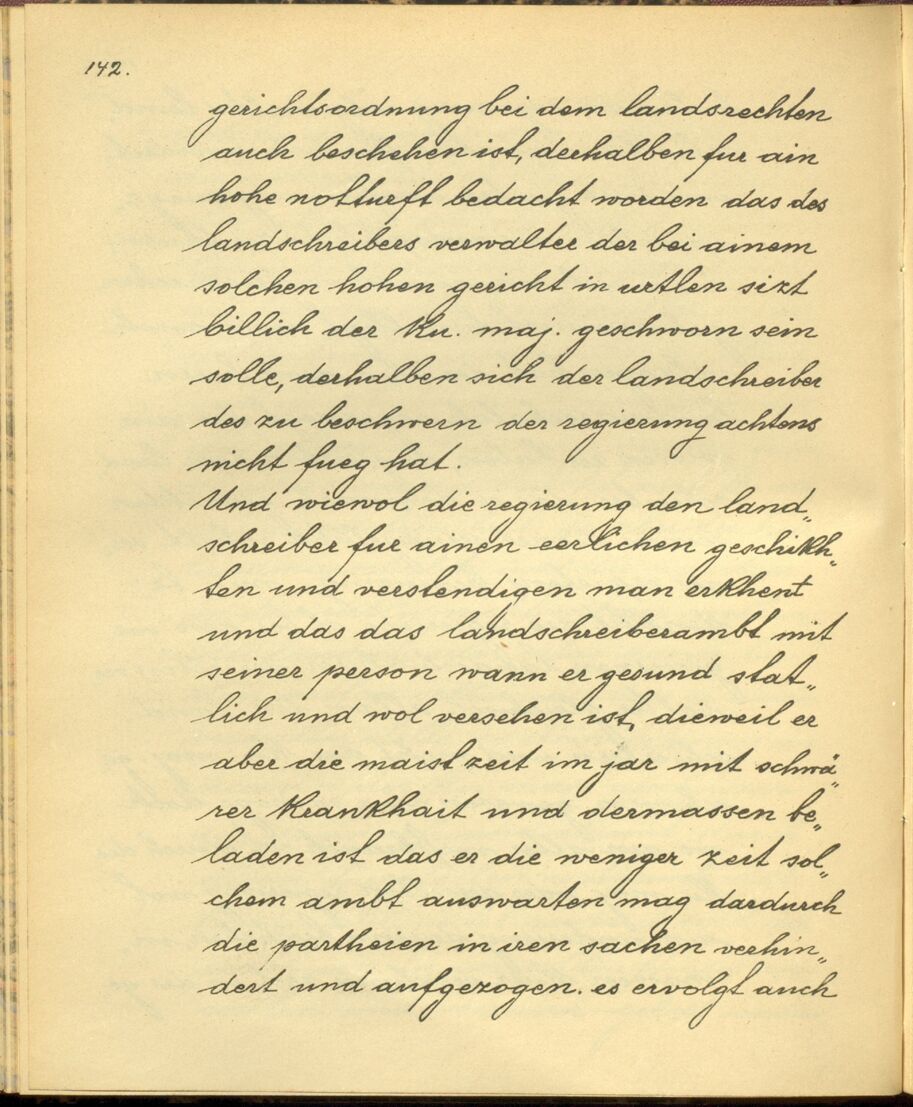 142.
gerichtsordnung bei dem landsrechten
auch beschehen ist, derhalben fur ain
hohe notturft bedacht worden das des
landschreibers verwalter der bei ainem
solchen hohen gericht in urtlen sizt
billich der Ku. maj. geschworn sein
solle, derhalben sich der landschreiber
des zu beschwern der regierung achtens
nicht fueg hat.
Und wiewol die regierung den land„
schreiber fur ainen eerlichen geschikh„
ten und verstendigen man erkhent
und das das landschreiberambt mit
seiner person wann er gesund stat„
lich und wol versehen ist, dieweil er
aber die maist zeit im jar mit schwä„
rer Krankhait und dermassen be„
laden ist das er die weniger zeit sol„
chem ambt auswarten mag dardurch
die partheien in iren sachen verhin„
dert und aufgezogen. es ervolgt auch